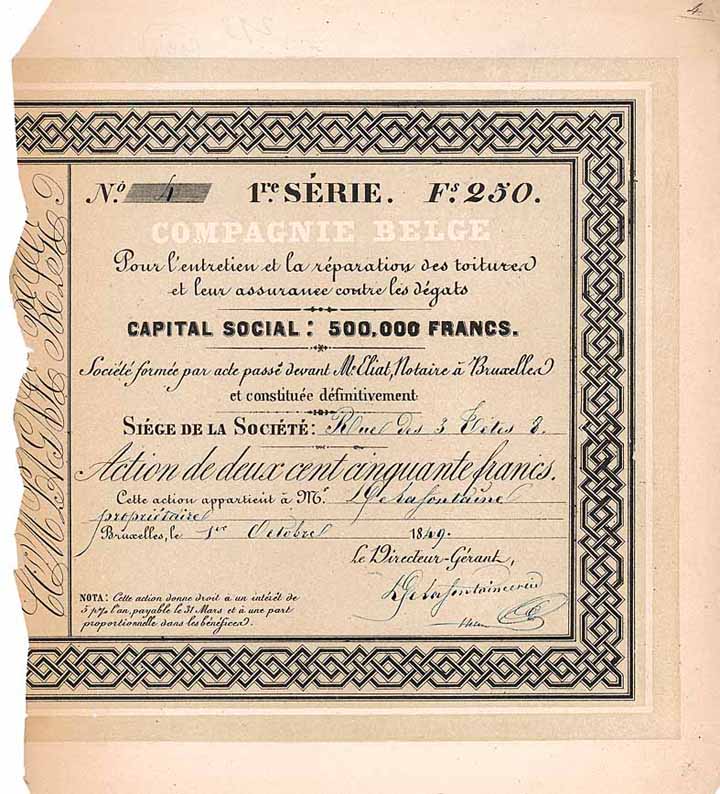 4.
Nº. 4 1re. SÉRIE. Fs. 250.
COMPAGNIE BELGE
Pour l'entretien et la réparation des toitures
et leur assurance contre les dégats
CAPITAL SOCIAL: 500,000 FRANCS.
Société formée par acte passé devant Me. Eliat, Notaire à Bruxelles
et constituée définitivement
SIÉGE DE LA SOCIÉTÉ: Rue des 3 Têtes 8.
Action de deux cent cinquante francs.
Cette action appartient à Mr. Delafontaine
propriétaire
Bruxelles, le 1er Octobre 1849.
Le Directeur-Gérant,
NOTA: Cette action donne droit à un intérêt de
5 p% l'an, payable le 31 Mars et à une part
proportionnelle dans les bénéfices.